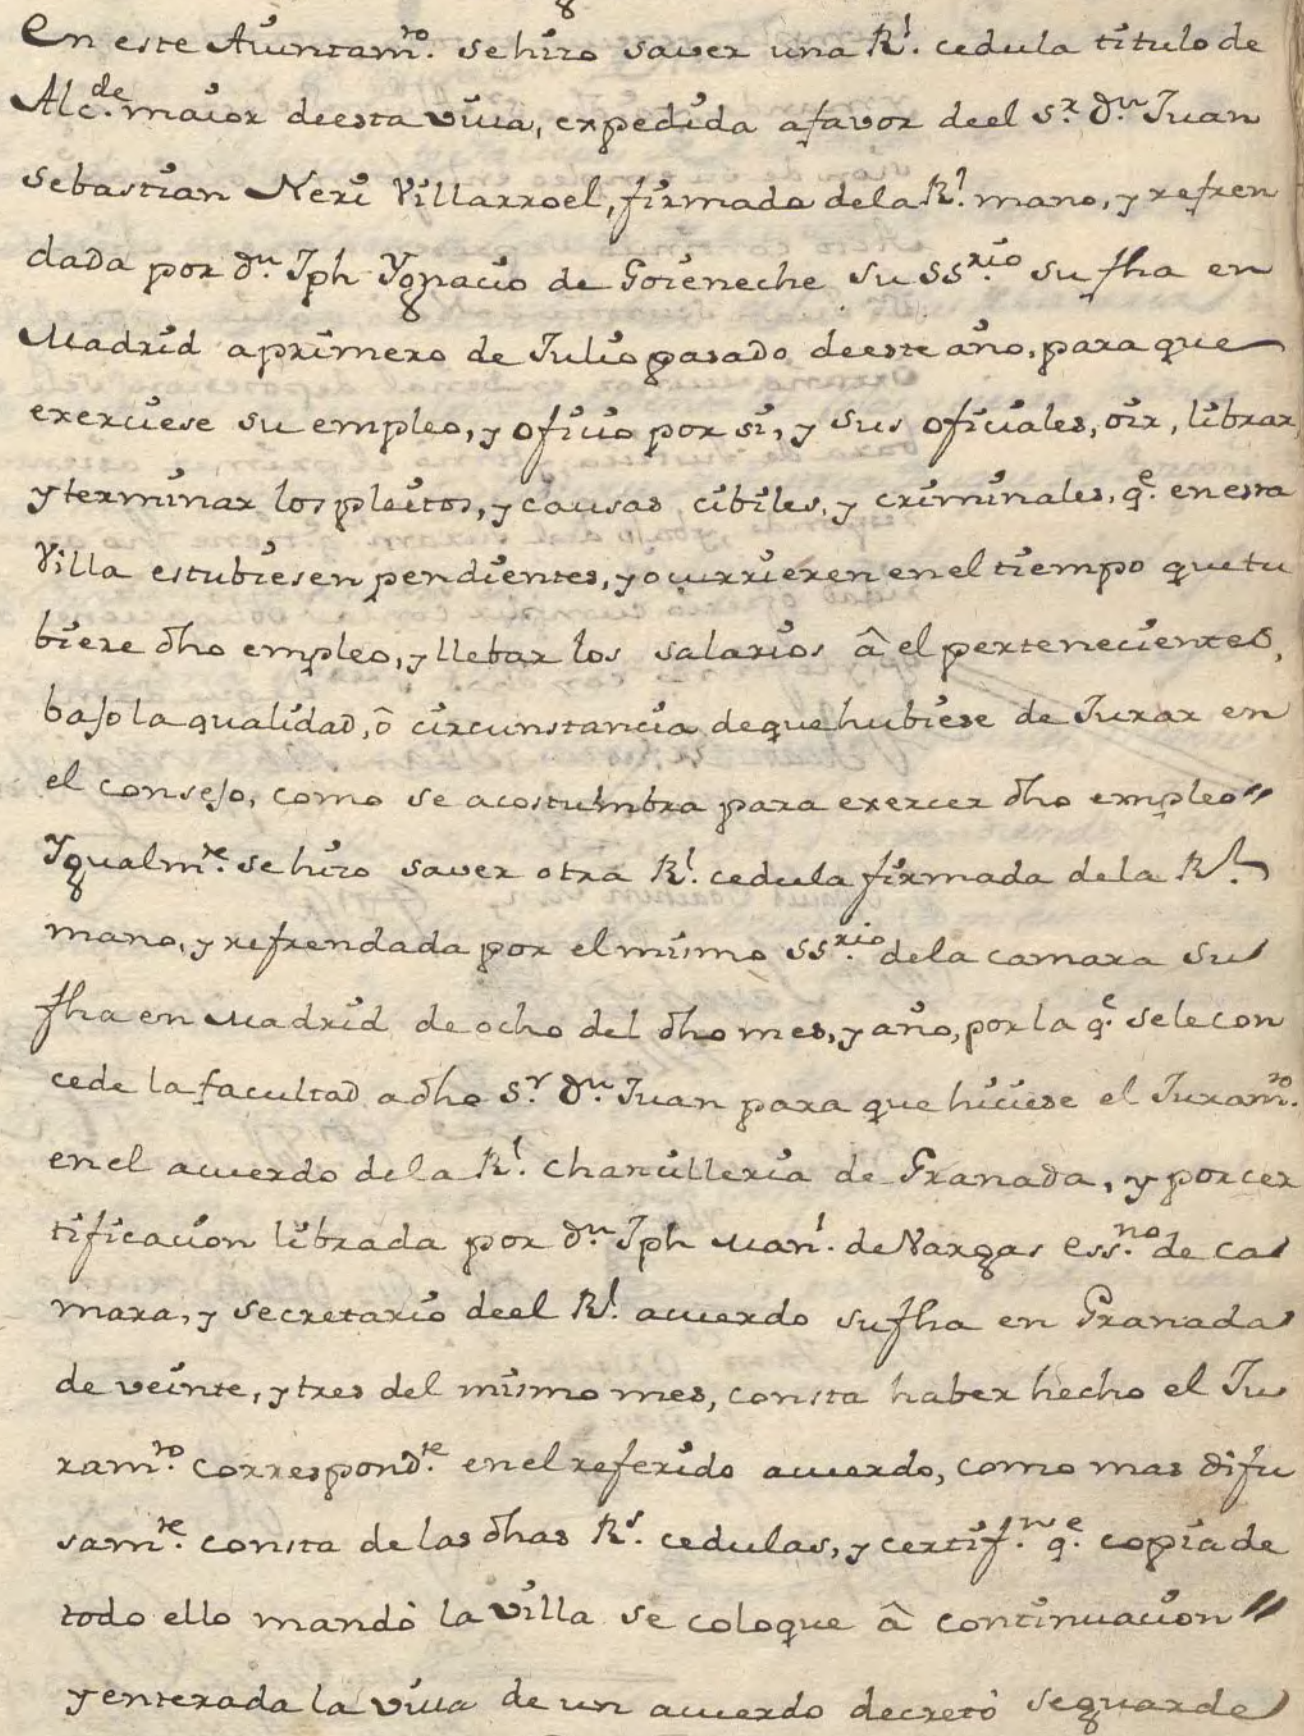 En este Aiuntam.to se hizo saver una R.l cedula titulo de
Alc.de maior de esta villa, expedida a favor de el S.r D.n Juan
Sebastian Neri Villarroel, firmada de la R.l mano, y refren
dada por D.n Jph Ygnacio de Goieneche su SS.rio su fha en
Madrid a primero de Julio pasado de este año, para que
exerciese su empleo, y oficio por si, y sus oficiales, oir, librar,
y terminar los pleitos, y causas cibiles, y criminales, q.e en esta
Villa estubiesen pendientes, y ocurrieren en el tiempo que tu
biere dho empleo, y llebar los salarios â el pertenecientes,
bajo la qualidad, ô circunstancia de que hubiese de Jurar en
el consejo, como se acostumbra para exercer dho empleo"
Ygualm.te se hizo saver otra R.l cedula firmada de la R.l
mano, y refrendada por el mismo SS.rio de la camara su
fha en Madrid de ocho del dho mes, y año, por la q.e se le con
cede la facultad a dho S.r D.n Juan para que hiciese el Juram.to
en el acuerdo de la R.l Chancilleria de Granada, y por cer
tificacion librada por D.n Jph Man.l de Vargas Ess.no de ca
mara, y secretario de el R.l acuerdo su fha en Granada
de veinte, y tres del mismo mes, consta haber hecho el Ju
ram.to correspond.te en el referido acuerdo, como mas difu
sam.te consta de las dhas R.s cedulas, y certif.n q.e copia de
todo ello mandò la villa se coloque â continuacion"
y enterada la villa de un acuerdo decretò se guarde